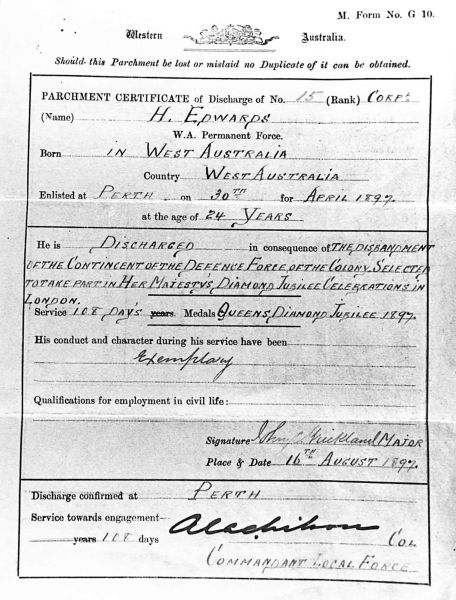 M. Form No. G 10.
Western Australia.
Should this Parchment be lost or mislaid no Duplicate of it can be obtained.
PARCHMENT CERTIFICATE of Discharge of No. 15 (Rank) CORPL
(Name) H. EDWARDS
W.A. Permanent Force.
Born IN WEST AUSTRALIA
Country WEST AUSTRALIA
Enlisted at PERTH on 30TH for APRIL 1897.
at the age of 24 YEARS
He is DISCHARGED in consequence of THE DISBANDMENT
OF THE CONTINGENT OF THE DEFENCE FORCE OF THE COLONY, SELECTED
TO TAKE PART IN HER MAJESTYS DIAMOND JUBILEE CELEBRATIONS IN
LONDON.
Service 108 DAYS years. Medals QUEENS DIAMOND JUBILEE 1897.
His conduct and character during his service have been
Exemplary
Qualifications for employment in civil life:
Signature John Strickland MAJOR
Place & Date 16TH AUGUST 1897.
Discharge confirmed at PERTH
Service towards engagement—
years 108 days COL
COMMANDANT LOCAL FORCE